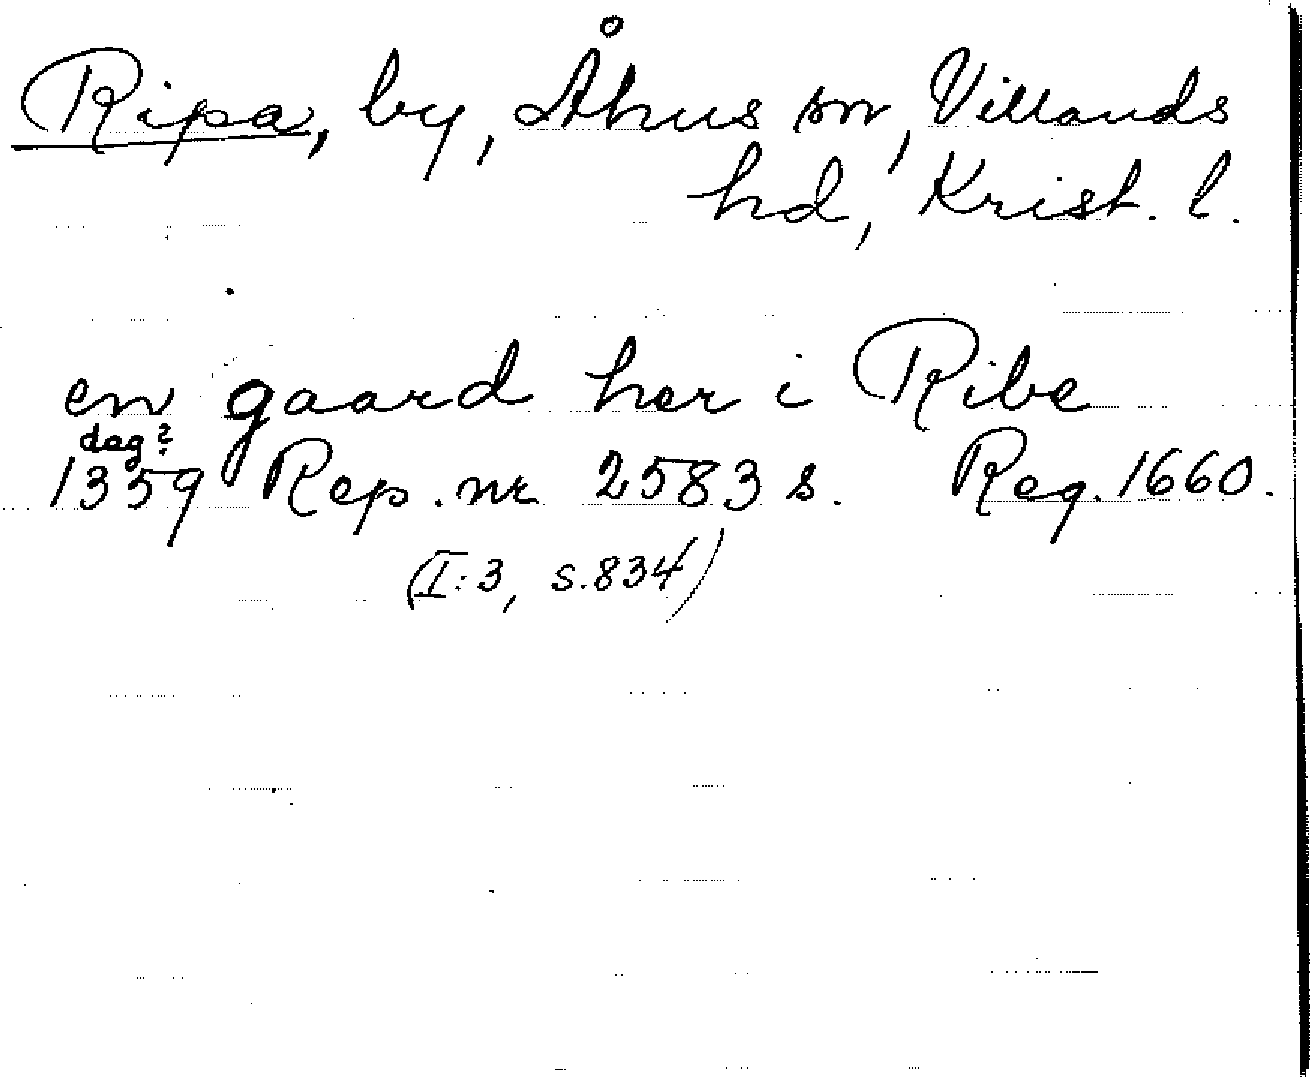 Ripa, by, Åhus sn, Villands
hd, Krist. l.
en gaard her i Ribe
dag?
1359 Rep. nr 2583 s. Reg. 1660.
(I:3, s.834)